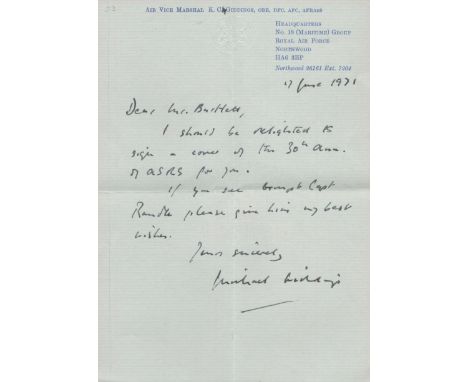 AIR VICE MARSHAL K. C. GIDDINGS, OBE, DFC, AFC, AFRAES
HEADQUARTERS
No. 18 (MARITIME) GROUP
ROYAL AIR FORCE
NORTHWOOD
HA6 3EP
Northwood 26161 Ext. 7604
17 June 1971
Dear Mr. Bartlett,
I should be delighted to
sign a cover of the 30th Ann.
of ASRS for you.
If you see Group Capt
Randle please give him my best
wishes.
Yours sincerely
Michael Giddings